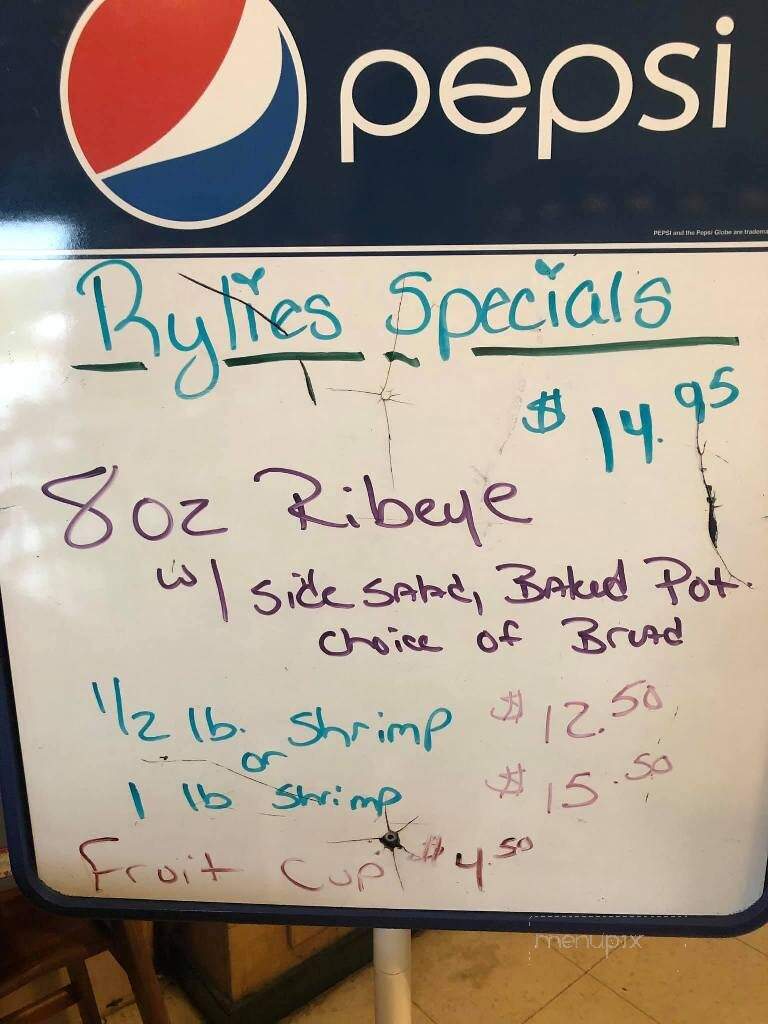 pepsi
PEPSI and the Pepsi Globe are tradema
Rylies Specials
$ 14.95
8oz Ribeye
w/ side salad, Baked Pot.
choice of Bread
1/2 lb. Shrimp $12.50
or
1 lb Shrimp $15.50
Fruit Cup $4.50
menupix